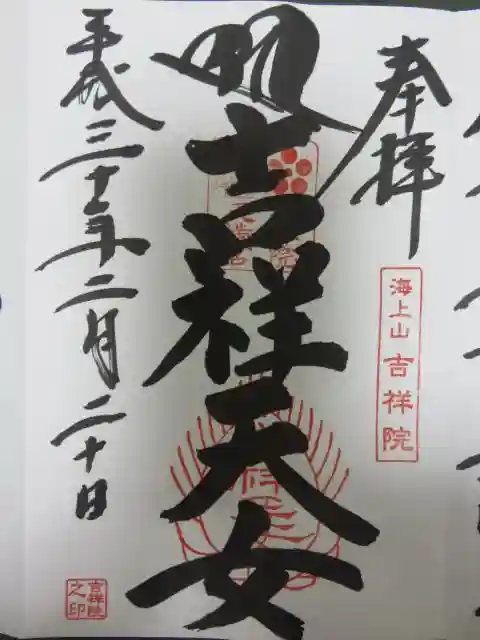 奉拝
海上山 吉祥院
吉祥天女
平成三十年二月二十日
吉祥院之印